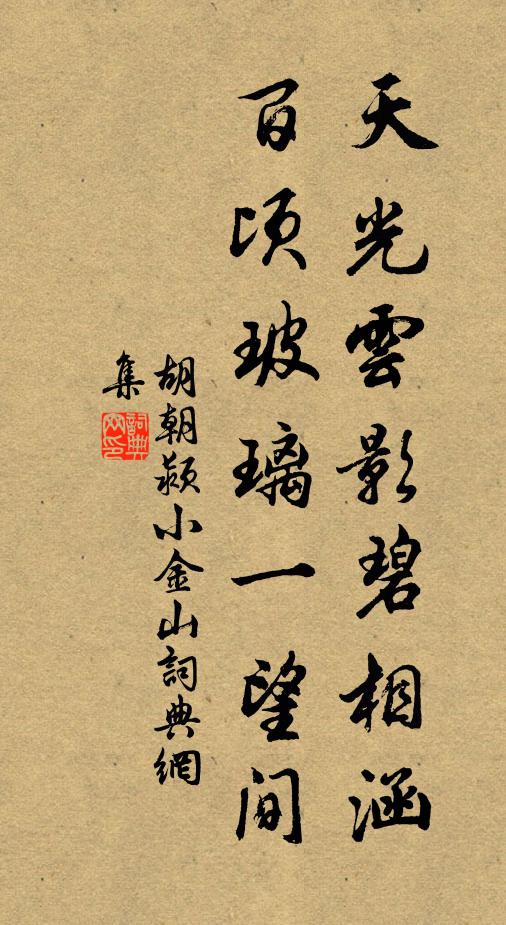 天光雲影碧相涵
百頃玻璃一望間
胡朝颍小金山詞典網
集
詞典網印